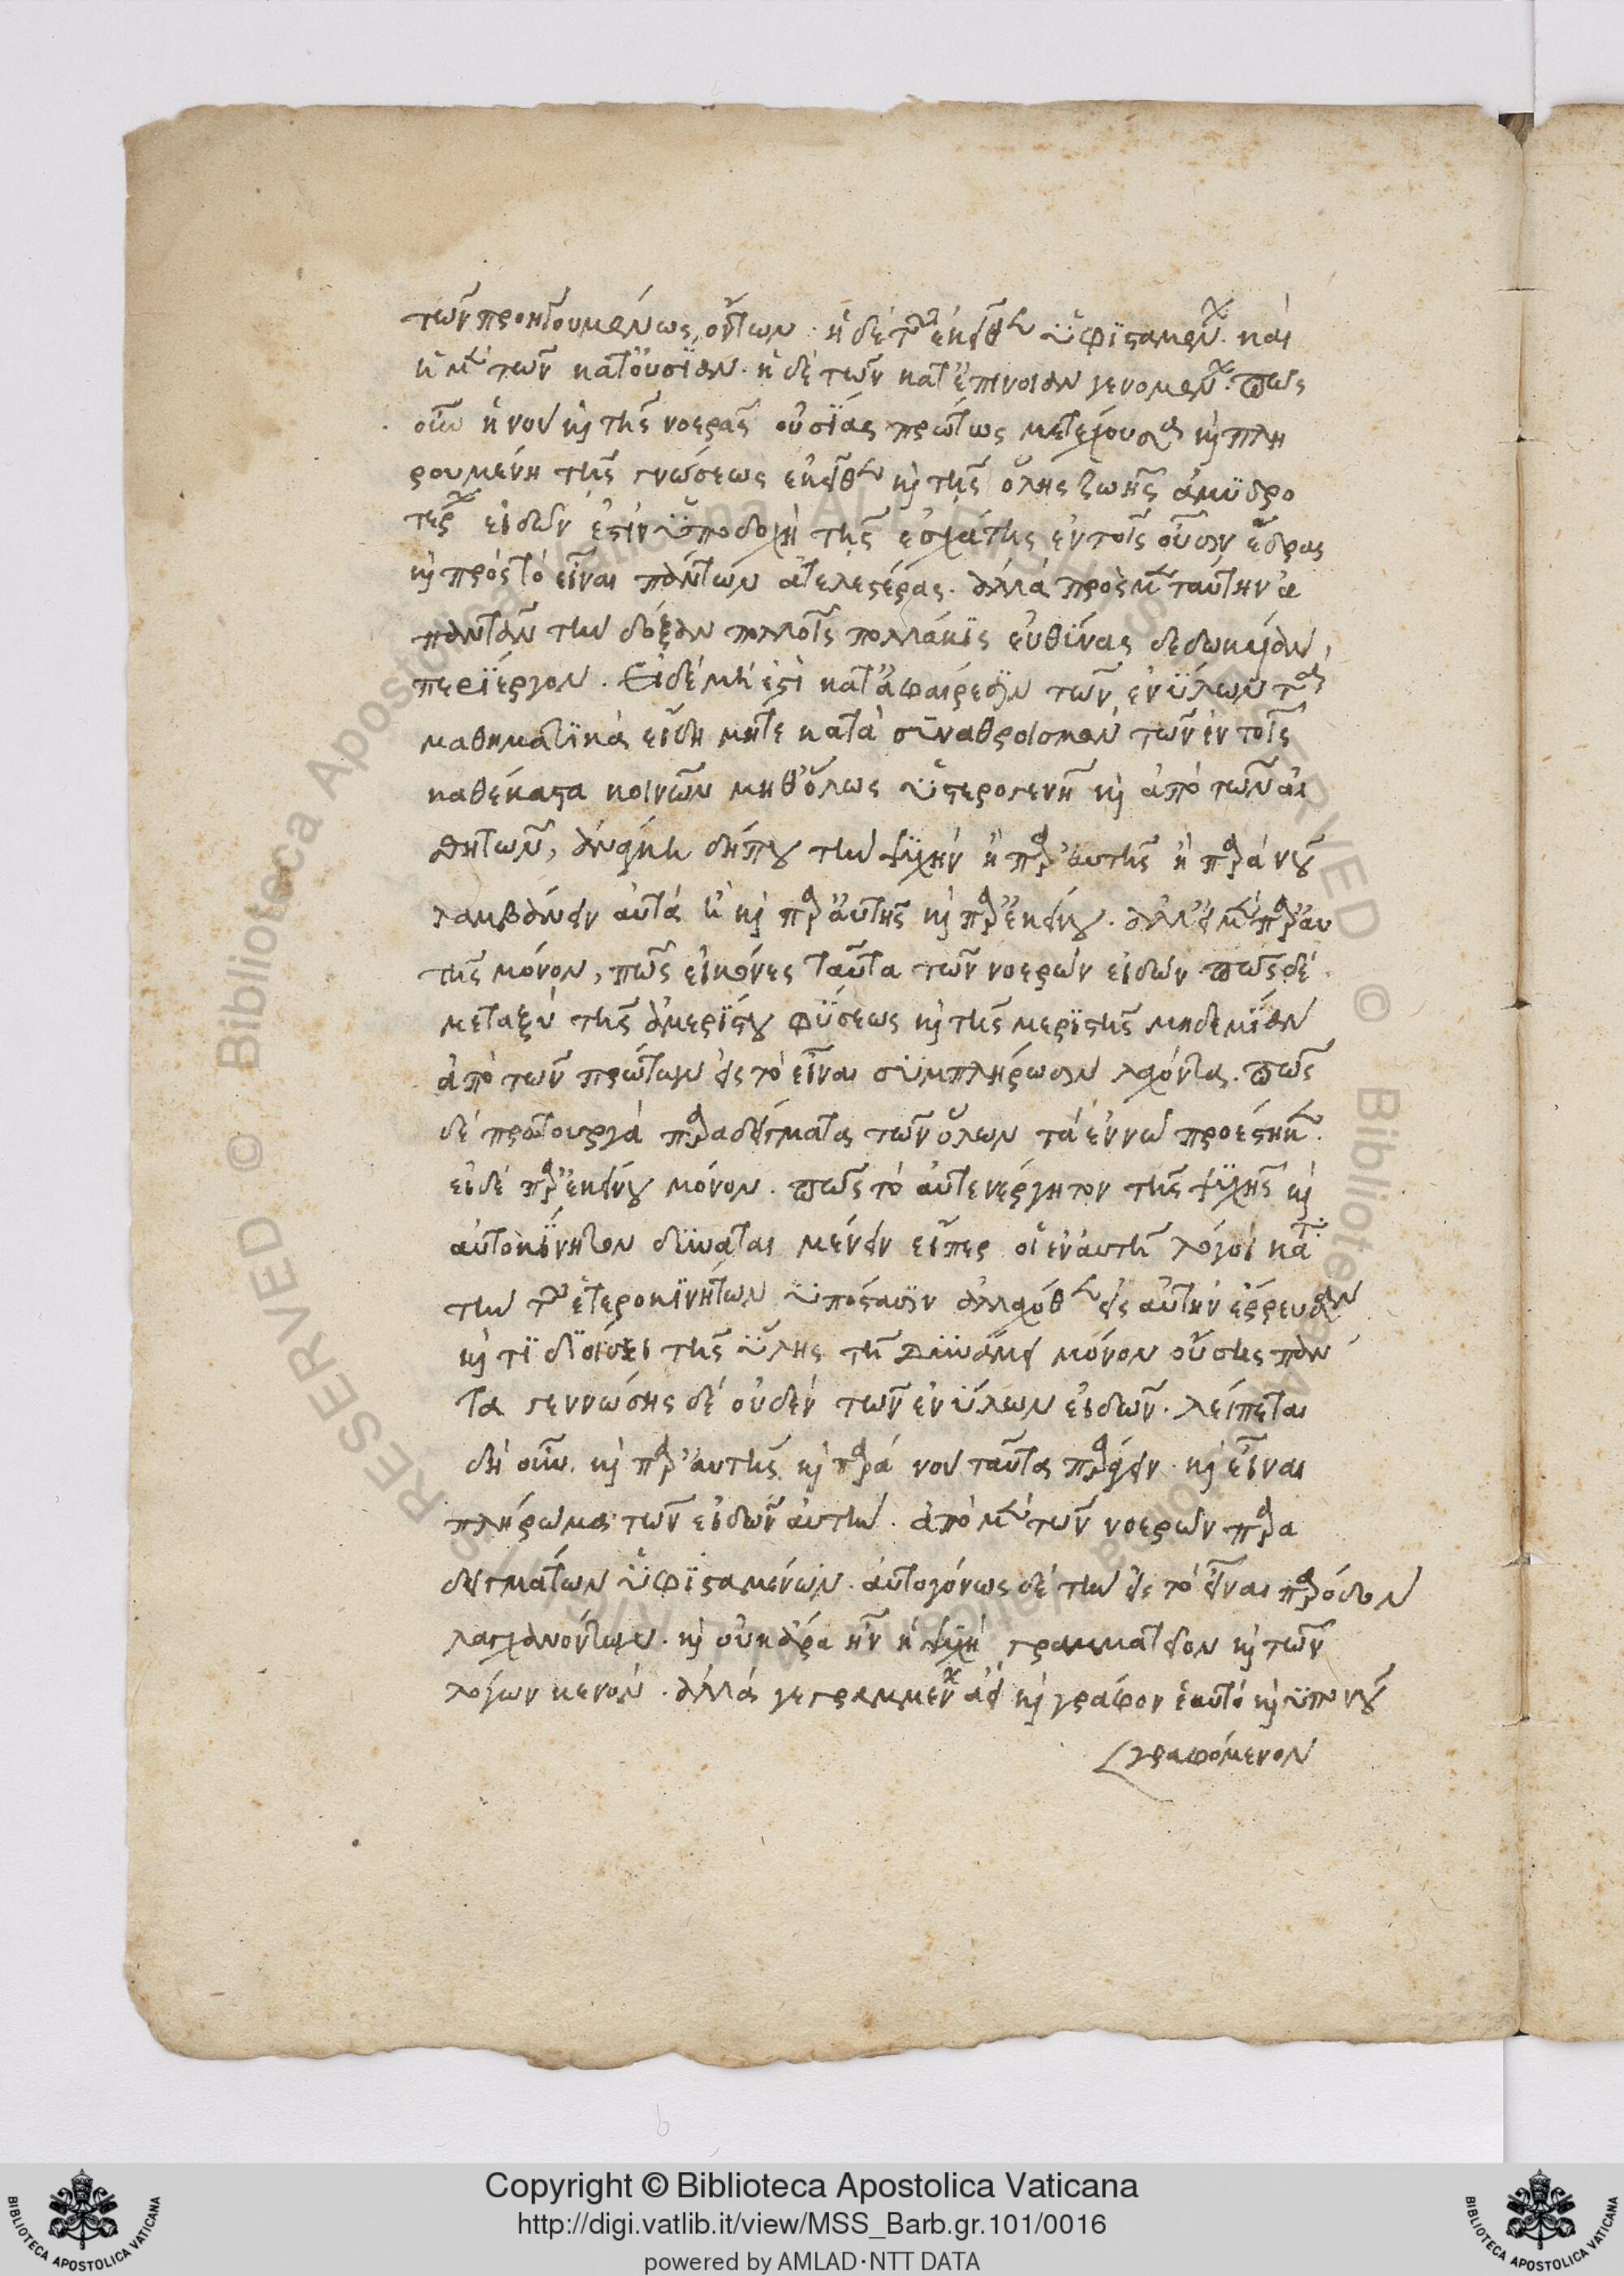 τῶν προηγουμένως ὄντων· ἡ δὲ τῶν ἐκεῖθεν ὑφισταμένων· καὶ
ἡ μὲν τῶν κατ' οὐσίαν· ἡ δὲ τῶν κατ' ἐπίνοιαν γενομένων· πῶς
οὖν ἡ νοῦ καὶ τῆς νοερᾶς οὐσίας πρώτως μετέχουσα καὶ πλη
ρουμένη τῆς γνώσεως ἐκεῖθεν καὶ τῆς ὅλης ζωῆς ἀμυδρο
τέρων εἰδῶν ἐστὶν ὑποδοχὴ τῆς ἐσχάτης ἐν τοῖς οὖσιν ἕδρας
καὶ πρὸς τὸ εἶναι πάντων ἀτελεστέρας· ἀλλὰ πρὸς μὲν ταύτην ἁ
πάντων τὴν δόξαν πολλοῖς πολλάκις εὐθίνας δεδωκυῖαν,
περίεργον. Εἰ δὲ μή ἐστι κατ' ἀφαίρεσιν τῶν ἐνύλων τὰ
μαθηματικὰ εἴδη μήτε κατὰ συναθροισμὸν τῶν ἐν τοῖς
καθέκαστα κοινῶν μηθ' ὅλως ὑστερογενῆ καὶ ἀπὸ τῶν αἰ
σθητῶν, ἀνάγκη δήπου τὴν ψυχὴν ἢ παρ' αὐτῆς ἢ παρὰ νοῦ
λαμβάνειν αὐτὰ ἢ καὶ παρ' αὐτῆς καὶ παρ' ἐκείνου· ἀλλ' εἰ μὲν παρ' αὐ
τῆς μόνον, πῶς εἰκόνες ταῦτα τῶν νοερῶν εἰδῶν· πῶς δὲ
μεταξὺ τῆς ἀμερίστου φύσεως καὶ τῆς μεριστῆς μηδεμίαν
ἀπὸ τῶν πρώτων εἰς τὸ εἶναι συμπλήρωσιν λαχόντα· πῶς
δὲ πρωτουργὰ παραδείγματα τῶν ὅλων τὰ ἐν νῷ προέστηκεν·
εἰ δὲ παρ' ἐκείνου μόνον· πῶς τὸ αὐτενέργητον τῆς ψυχῆς καὶ
αὐτοκίνητον δύναται μένειν εἴπερ οἱ ἐν αὐτῇ λόγοι κατὰ
τὴν τῶν ἑτεροκινήτων ὑπόστασιν ἀλλαχόθεν εἰς αὐτὴν ἐρρευσαν
καὶ τί διοίσει τῆς ὕλης τῇ δυνάμει μόνον οὔσης πάν
τα γεννώσης δὲ οὐδὲν τῶν ἐνύλων εἰδῶν· λείπεται
δὴ οὖν καὶ παρ' αὐτῆς καὶ παρὰ νοῦ ταῦτα παράγειν· καὶ εἶναι
πλήρωμα τῶν εἰδῶν αὐτὴν· ἀπὸ μὲν τῶν νοερῶν παρα
δειγμάτων ὑφισταμένων· αὐτογόνως δὲ τὴν εἰς τὸ εἶναι πάροδον
λαγχανόντων· καὶ οὐκ ἄρα ἦν ἡ ψυχὴ γραμματεῖον καὶ τῶν
λόγων κενόν· ἀλλὰ γεγραμμένον ἀεὶ καὶ γράφον ἑαυτὸ καὶ ὑπὸ νοῦ
γραφόμενον
Copyright © Biblioteca Apostolica Vaticana
http://digi.vatlib.it/view/MSS_Barb.gr.101/0016
powered by AMLAD·NTT DATA